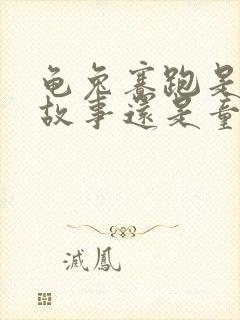 龟兔赛跑是
故事还是童
灭凤